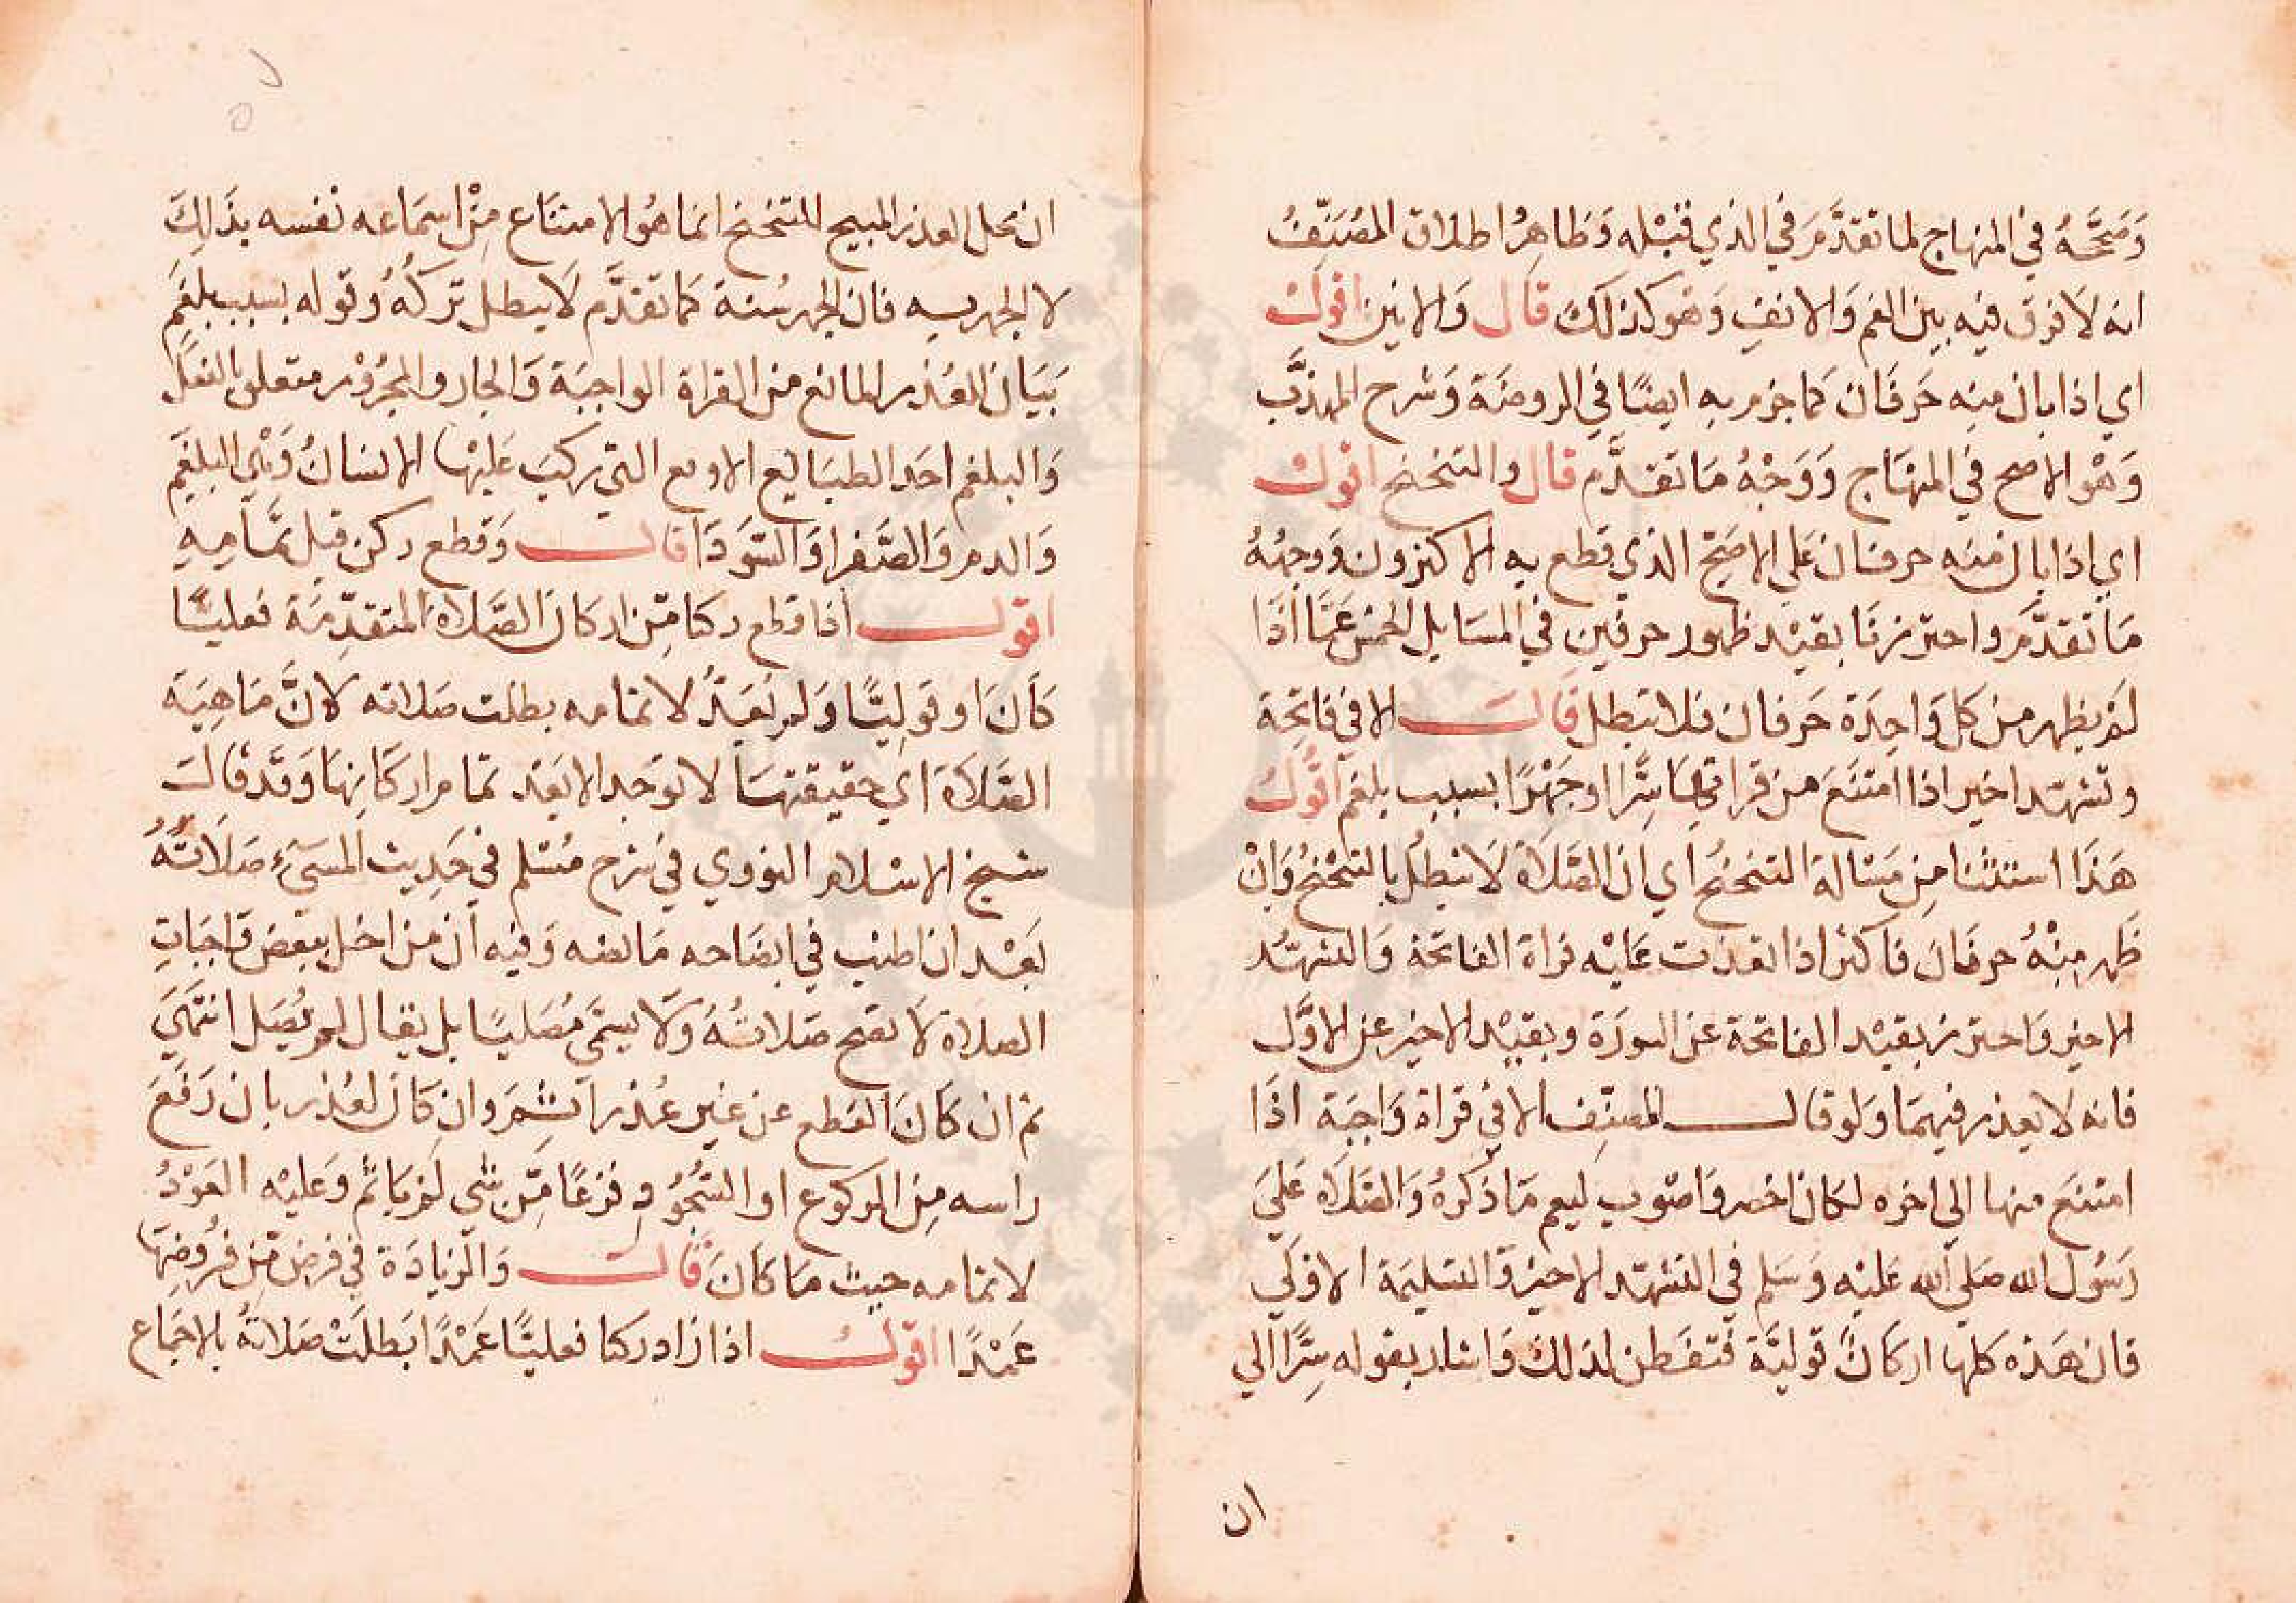 وَصَحَّحَهُ في المنهاج لما تقدَّمَ في الذي قبْله وَظاهِرُ اطلاق المُصَنِّفُ
انه لَا فرق فيه بين الفم وَالانفِ وَهو كذلكَ قال وَالانين اقولُ
اي اذا بان منِه حَرفَان كما جزم به ايضًا في الروضَة وَشرح المهذَّب
وَهْو الاصح في المنهَاج وَوَجْهُ مَا تقدَّم قال والتنحنح اقولُ
اي اذا بان منه حرفان عَلي الاصَحّ الذي قطع به الاكثرون وَوجهُهُ
مَا تقدَّمَ واحترزنَا بقيْد ظهور حرفين في المسَايل الخمس عَمَّا اذَا
لَم يظهر من كل وَاحِدَة حَرفان فلا تبطل قالَ الا في فاتِحَة
وتشهّد اخير اذا امتنَعَ من قراتها سِرًّا اوجَهْرًا بسبب بلغم اقولُ
هَذَا استثنا مِن مَسْالة التنحنح اي ان الصَّلاة لَا تبطلُ بالتنحْنح وَانْ
ظهر مِنْهُ حرفَان فاكثر اذا تعذرت عَليْه قراة الفاتحَة وَالتشهّد
الاخير وَاحترز بقيْد الفاتحة عن السورَة وبقيْد الاخير عن الاوَّل
فانه لا يعذر فيهمَا وَلو قال المصنِّف الا في قراة وَاجبَة اذَا
امتنعَ منها الي اخره لكان اخصر وَاصوب ليعم مَا ذكرهُ وَالصَّلاه عَلي
رَسُول الله صَلي الله عَليْه وَسَلم في التشهّد الاخير وَالتسليمَة الاولَي
فان هَذه كلها اركانٌ قوليَّة فتفَطن لذلك وَاشار بقوله سِرًّا الي
ان
ان محل العذر المبيح للتنحنح انما هُو الامتنَاع مِنْ اسمَاعه نفسه بذَلِكَ
لا الجهر به فان الجهر سُنة كما تقدَّم لَا يبطل تركهُ وقوله بسبب بلغمَ
بَيَان العُذر المانع من القراة الواجبَة وَالجار والمجرُوْر متعلق بالفعل
وَالبلغم احَد الطبَايع الاربع التي ركبَ عَليْها الانسانُ وَهْي البلغم
وَالدم وَالصَّفرا وَالسَّودَا قال وَقطع ركن قبل تمَامِهِ
اقول اذا قطع ركنا مّن اركان الصَّلاة المتقدِّمَة فعليًّا
كَانَ اوقولِيًّا وَلم يَعُدْ لاتمامه بطلت صَلاته لانَّ مَاهِيَة
الصَّلاة اي حقيقتهَا لا توجَد الا بَعْد تمام اركانِهَا وَقد قالَ
شيخ الاسْلام النووي في شرح مُسْلم في حَدِيث المسَيء صَلاتُهُ
بَعْد ان اطنب في ايضَاحه مَا لفظه وَفيه ان من اخل ببَعض وَاجبَاتِ
الصلاة لَا تصح صَلاتُهُ وَلَا يسمَّى مُصَليًا بل يقال لم تُصَل انتَهَي
ثم ان كَانَ القطع عن غير عُذر اَثِمَ وان كان لعُذر بان رَفعَ
راسه مِن الركوع او السُّجُوُد فزعًا مّن شي لَم يَاثم وَعَليْه العَوْدُ
لاتمامه حيث مَا كَانَ قالَ وَالزيادَة في فرض مّن فرُوضِهَا
عَمْدًا اقول اذا زاد ركنا فعليًّا عَمْدًا بَطلَتْ صَلاتهُ بالاجمَاع